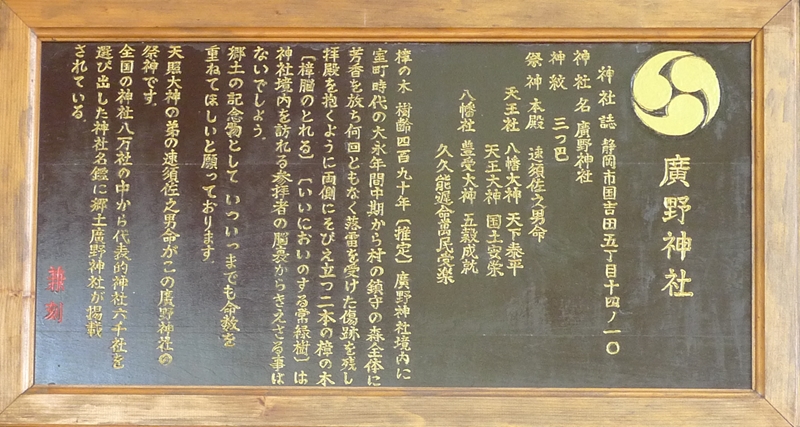 廣野神社
神社誌 静岡市国吉田五丁目十四ノ一〇
神社名 廣野神社
神紋 三つ巴
祭神 本殿 速須佐之男命
天王社 八幡大神 天下泰平
天王大神 国王安栄
八幡社 豊受大神 五穀成就
久久能遅命萬民豊楽
樟の木 樹齢四百九十年〔推定〕廣野神社境内に
室町時代の大永年間中期から村の鎮守の森全体に
芳香を放ち何回ともなく落雷を受けた傷跡を残し
拝殿を抱くように両側にそびえ立つ二本の樟の木
〔樟脳のとれる〕〔いいにおいのする常緑樹〕は
神社境内を訪れる参拝者の脳裏からきえさる事は
ないでしょう。
郷土の記念物として いついつまでも命数を
重ねてほしいと願っております。
天照大神の弟の速須佐之男命がこの廣野神社の
祭神です。
全国の神社八万社の中から代表的神社六千社を
選び出した神社名鑑に郷土廣野神社が掲載
されている。